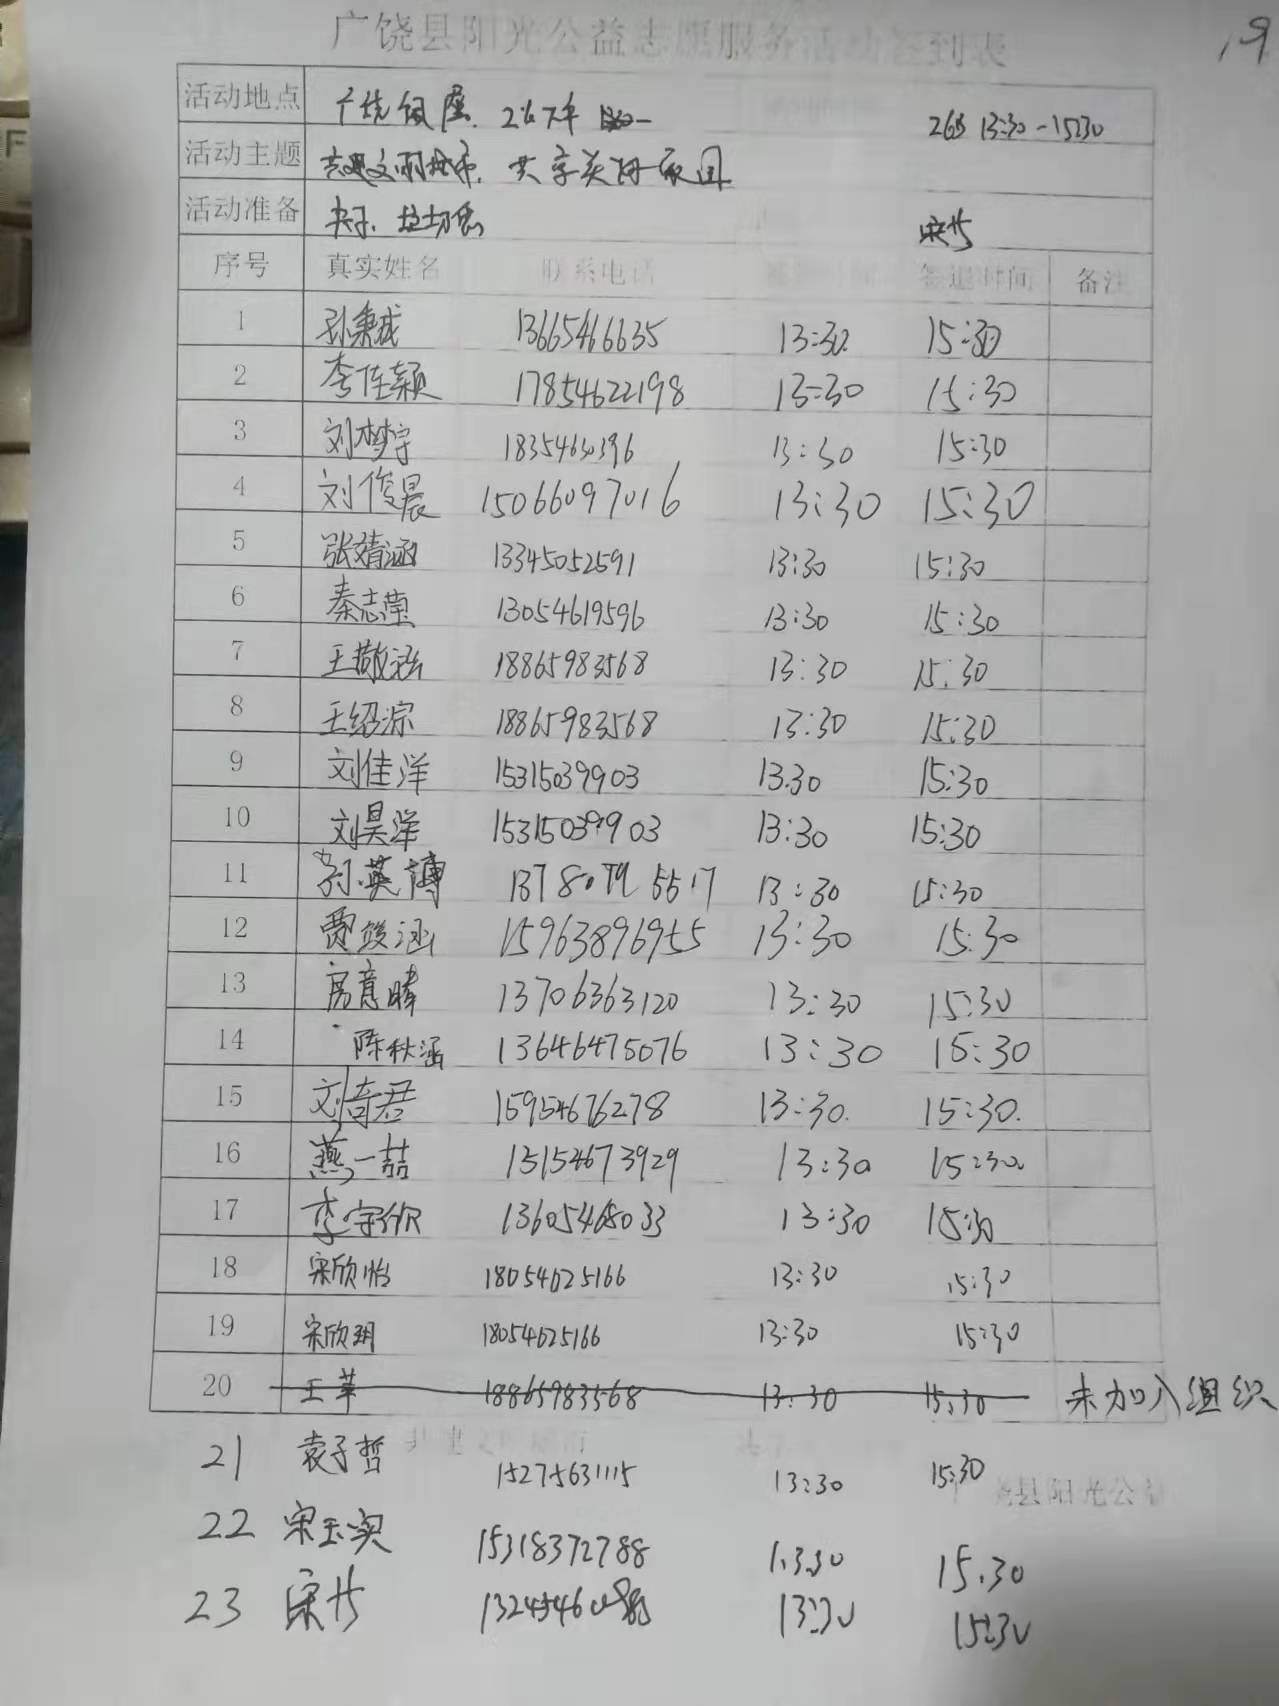 广饶县阳光公益志愿服务活动签到表
19
活动地点 广饶 13:30-15:30
活动主题 共享美好家园
活动准备 夹子、垃圾
序号 真实姓名 联系电话 签到时间 签退时间 备注
1 孙秉成 13665466635 13:30 15:30
2 李佳颖 17854622198 13:30 15:30
3 刘梦宇 13:30 15:30
4 刘俊晨 15066097016 13:30 15:30
5 张婧涵 13345052591 13:30 15:30
6 秦志莹 13054619596 13:30 15:30
7 王敬泓 18865983568 13:30 15:30
8 王绍淙 18865983568 13:30 15:30
9 刘佳洋 15315039903 13.30 15:30
10 刘昊洋 15315039903 13:30 15:30
11 孙英博 13:30 15:30
12 贾竣涵 15963896955 13:30 15:30
13 房意暐 13706363120 13:30 15:30
14 陈秋涵 13646475076 13:30 15:30
15 刘奇君 15954676278 13:30. 15:30.
16 燕一喆 13154673929 13:30 15:30
17 李宇欣 13605468033 13:30 15:30
18 宋欣怡 18054625166 13:30 15:30
19 宋欣玥 18054625166 13:30 15:30
20 王苹 18865983568 13:30 15:30 未加入组织
21 袁子哲 15275631115 13:30 15:30
县阳光公益
22 宋玉实 15318372788 13.30 15.30
23 13:30 15:30